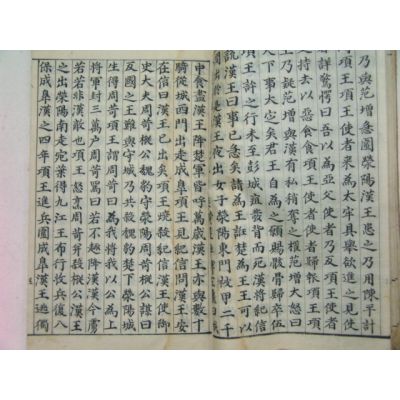 乃與范增急圍滎陽漢王患之乃用陳平計
項王項王使者來為太牢具舉欲進之見使
者詳驚愕曰吾以為亞父使者乃反項王使者
更持去以惡食食項王使者使者歸報項王項
王乃疑范增與漢有私稍奪之權范增大怒曰
天下事大定矣君王自為之願賜骸骨歸卒伍
項王許之行未至彭城疽發背而死漢將紀信
說漢王曰事已急矣請為王誑楚為王王可以
間出於是漢王夜出女子滎陽東門被甲二千
中食盡漢王降楚軍皆呼萬歲漢王亦與數十
騎從城西門出走成皋項王見紀信問漢王安
在信曰漢王已出矣項王燒殺紀信漢王使御
史大夫周苛樅公魏豹守滎陽周苛樅公謀曰
反國之王難與守城乃共殺魏豹楚下滎陽城
生得周苛項王謂周苛曰為我將我以公為上
將軍封三萬戶周苛罵曰若不趣降漢漢今虜
若若非漢敵也項王怒烹周苛并殺樅公漢王
之出滎陽南走宛葉得九江王布行收兵復入
保成皋漢之四年項王進兵圍成皋漢王逃獨